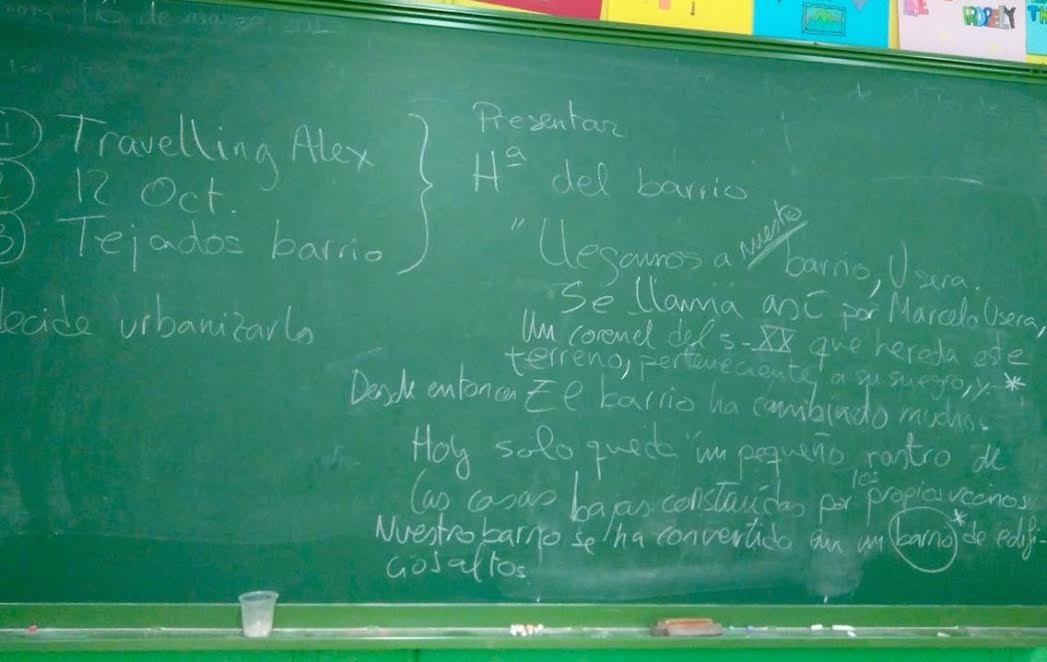 ① Travelling Alex
② 12 Oct.
③ Tejados barrio
decide urbanizarlo
Presentar
Hª del barrio
"Llegamos a nuestro barrio, Usera.
Se llama así por Marcelo Usera,
un coronel del s-XX que hereda este
terreno, perteneciente a su suegro, y *
Desde entonces El barrio ha cambiado mucho.
Hoy solo queda un pequeño rastro de
las casas bajas construidas por los propios vecinos
Nuestro barrio se ha convertido en un barrio * de edifi-
cios altos.
ROPELY
TH